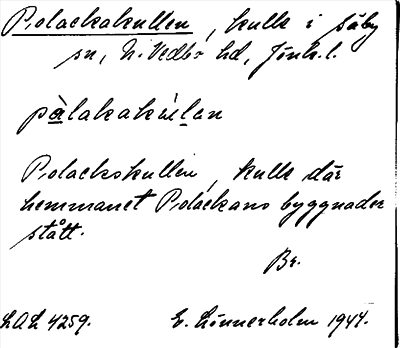 Polackakullen, kulle i Säby
sn, N. Vedbo hd, Jönk. l.
pàlakakúlan
Polackskullen, kulle där
hemmanet Polackans byggnader
stått.
Br.
LAL 4259. E. Linnerholm 1944.